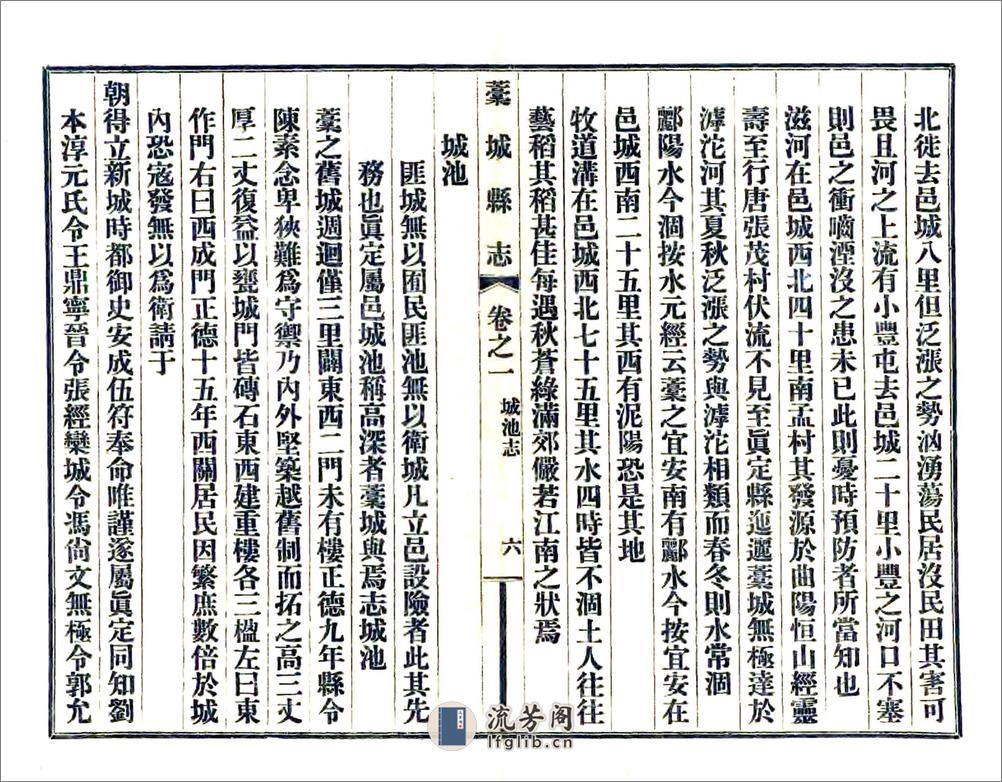 北徙去邑城八里但泛漲之勢汹湧蕩民居沒民田其害可
畏且河之上流有小豐屯去邑城二十里小豐之河口不塞
則邑之衝嚙湮沒之患未已此則憂時預防者所當知也
滋河在邑城西北四十里南孟村其發源於曲陽恒山經靈
壽至行唐張茂村伏流不見至眞定縣迤邐藁城無極達於
滹沱河其夏秋泛漲之勢與滹沱相類而春冬則水常涸
酈陽水今涸按水元經云藁之宜安南有酈水今按宜安在
邑城西南二十五里其西有泥陽恐是其地
牧道溝在邑城西北七十五里其水四時皆不涸土人往往
藝稻其稻甚佳每遇秋蒼綠滿郊儼若江南之狀焉
藁城縣志 卷之一 城池志 六
城池
匪城無以囿民匪池無以衛城凡立邑設險者此其先
務也眞定屬邑城池稱高深者藁城與焉志城池
藁之舊城週迴僅三里闢東西二門未有樓正德九年縣令
陳素念卑狹難爲守禦乃內外堅築越舊制而拓之高三丈
厚二丈復益以甕城門皆磚石東西建重樓各三楹左曰東
作門右曰西成門正德十五年西關居民因繁庶數倍於城
內恐寇發無以爲衛請于
朝得立新城時都御史安成伍符奉命唯謹遂屬眞定同知劉
本淳元氏令王鼎寧晉令張經欒城令馮尙文無極令郭允
流芳阁
lfglib.cn